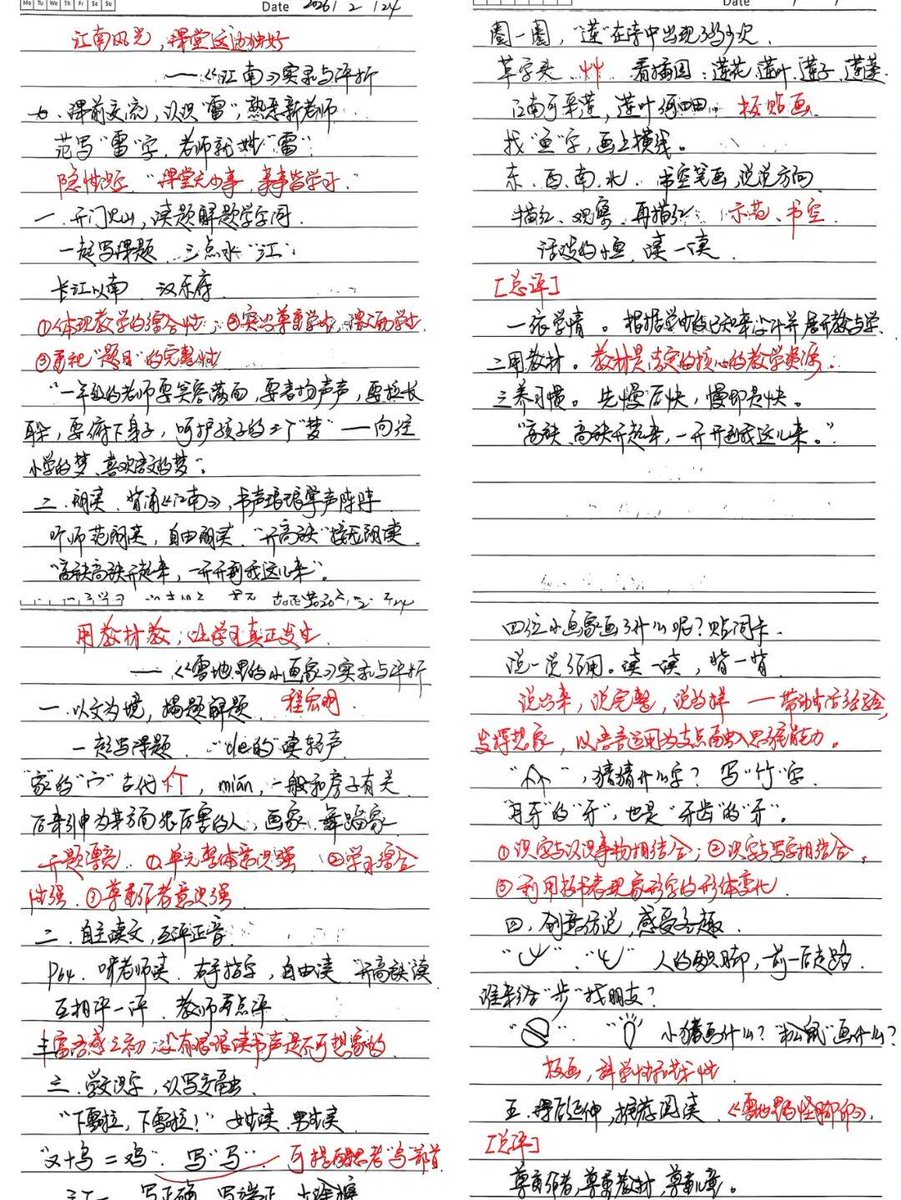 Mo Tu We Th Fr Sa Su
Date 2026 / 2 / 24
江南风光，课堂这边独好
——《江南》实录与评析
七、课前交流，认识“雷”，熟悉新老师
范写“雷”字，老师就姓“雷”
隐性课程 “课堂无小事，事事皆学习”
一、开门见山，读题解题学字词
一起写课题 三点水“江”
长江以南 汉乐府
①体现教学的综合性；②突出尊重学生，
③重视“题目”的完整性
“一年级的老师要笑容满面，要喜均声声，要拉长
耳朵，要俯下身子，呵护孩子的二个“梦”——向往
小学的梦、喜欢语文的梦”。
二、朗读、背诵《江南》，书声琅琅掌声阵阵
听师范朗读，自由朗读，“开高铁”接龙朗读
“高铁高铁开起来，一开开到我这儿来”。
用教材教，让学习真正发生
——《雪地里的小画家》实录与评析
一、以文为境，揭题解题 程宏明
一起写课题 “de的”读轻声
“家”的“宀”古代，mián，一般和房子有关
后来引申为某方面很厉害的人，画家、舞蹈家
开题漂亮 ①单元整体意识强 ②学习综合
性强 ③尊重作者意识强
二、自主读文，互评正音
P64 听老师读 右手指字，自由读 “开高铁”读
互相评一评 教师有点评
丰富语感之初，没有琅琅读书声是不可想象的
三、学文识字，认写交融
“下雪啦，下雪啦！” 女生读 男生读
“又+鸟=鸡” 写“马” 可提醒思考“马”部首
写正确 写端正
Date
圈一圈，“莲”在诗中出现了几次
草字头 艹 看插图：莲花、莲叶、莲子、莲蓬
江南可采莲，莲叶何田田。 板贴画
找“鱼”字，画上横线。
东、西、南、北 书空笔画，说说方向
描红、观察、再描红 示范、书空
活泼的小鱼，读一读
[总评]
一依学情。根据学生的已知来设计并展开教与学
二用教材。教材是法定的核心的教学资源。
三养习惯。先慢后快，慢即是快。
“高铁、高铁开起来，一开开到我这儿来。”
四位小画家画了什么呢？贴词卡
说一说引用。读一读，背一背
说出来，说完整，说的样——带动生活经验，
发挥想象，以语言运用为支点融入思维能力。
“”，猜猜什么字？ 写“竹”字
“月牙”的“牙”，也是“牙齿”的“牙”。
①识字与认识事物相结合；②识字与写字相结合，
③利用板书表现象形字的形体变化
四、创意仿说，感受童趣
“” “” 人的两只脚，前一后走路
谁来给“步”找朋友？
“” “” 小猪画什么？“松鼠”画什么？
板画，科学性和艺术性
五、课后延伸，推荐阅读 《雪地里的怪脚印》
[总评]
尊重作者，尊重教材，尊重儿童。